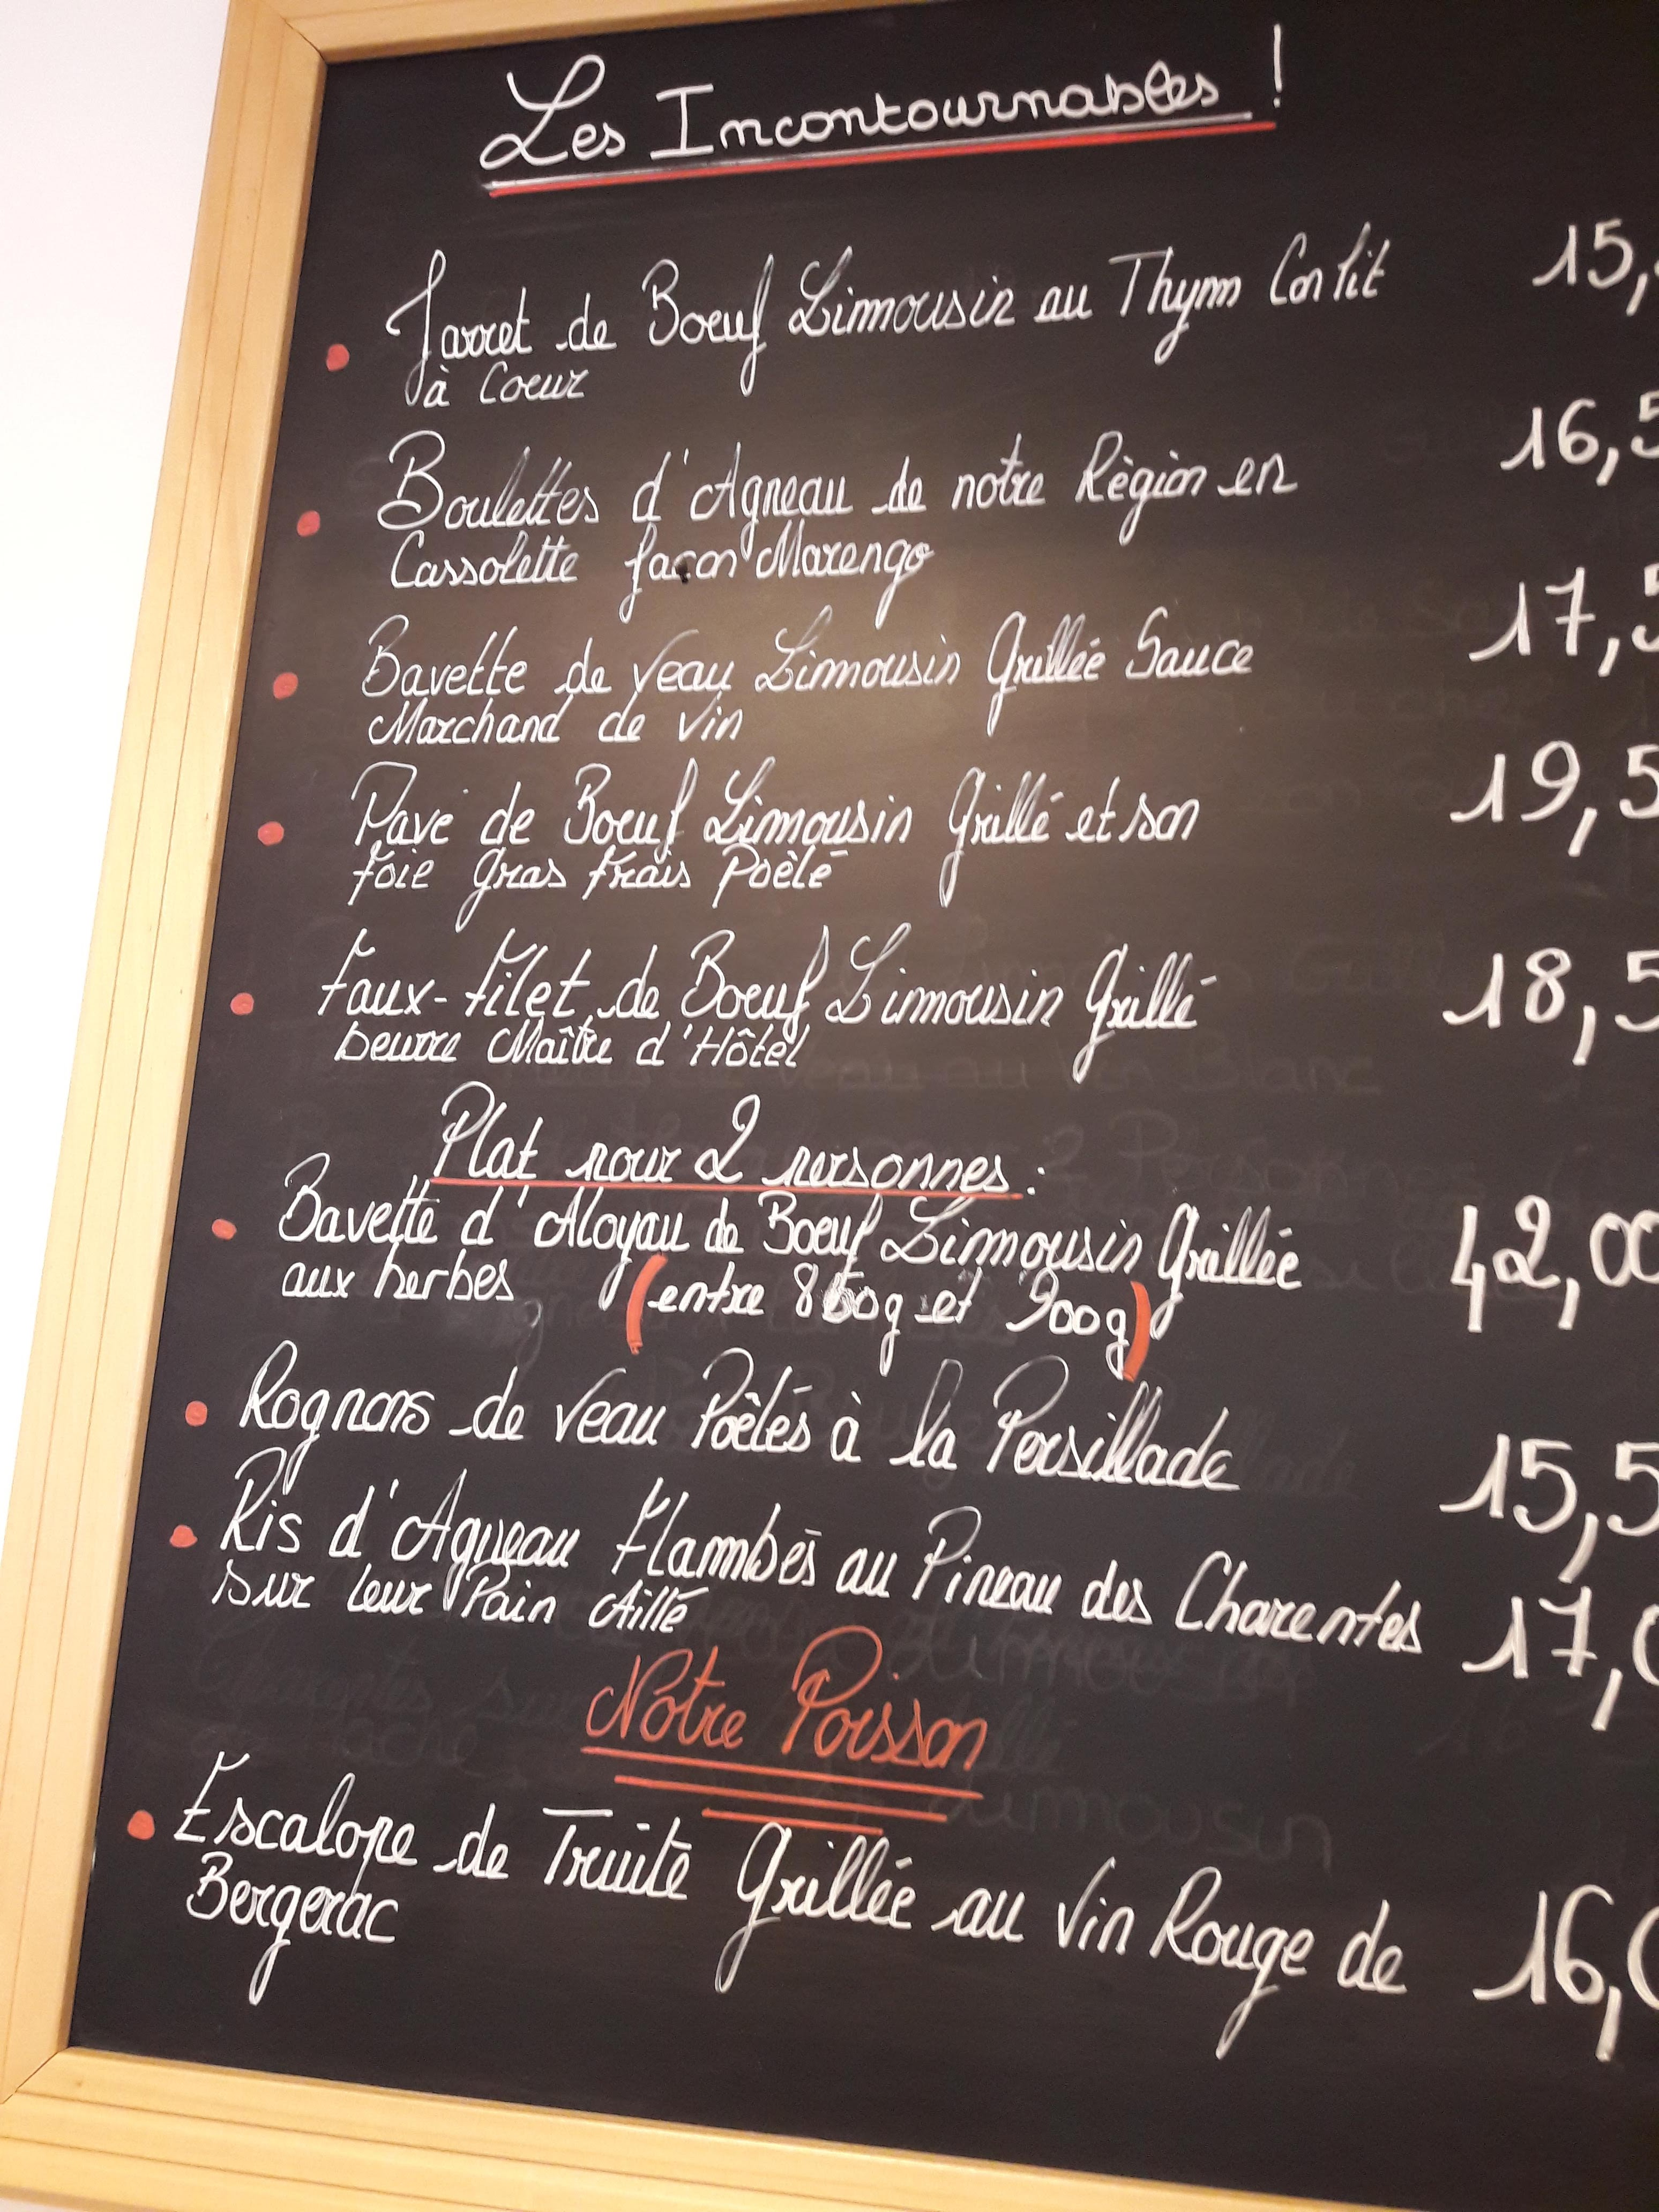 Les Incontournables !
Jarret de Boeuf Limousin au Thym Confit 15,
à Coeur
Boulettes d'Agneau de notre Règion en 16,5
Cassolette façon Marengo
Bavette de Veau Limousin Grillée Sauce 17,5
Marchand de Vin
Pavé de Boeuf Limousin Grillé et son 19,5
foie gras frais Poêlé
Faux-Filet de Boeuf Limousin Grillé 18,5
beurre Maître d'Hôtel
Plat pour 2 personnes :
Bavette d'Aloyau de Boeuf Limousin Grillée 42,00
aux herbes (entre 850g et 900g)
Rognons de Veau Poêlés à la Persillade 15,5
Ris d'Agneau Flambés au Pineau des Charentes 17,0
sur leur Pain Aillé
Notre Poisson
Escalope de Truite Grillée au Vin Rouge de 16,0
Bergerac